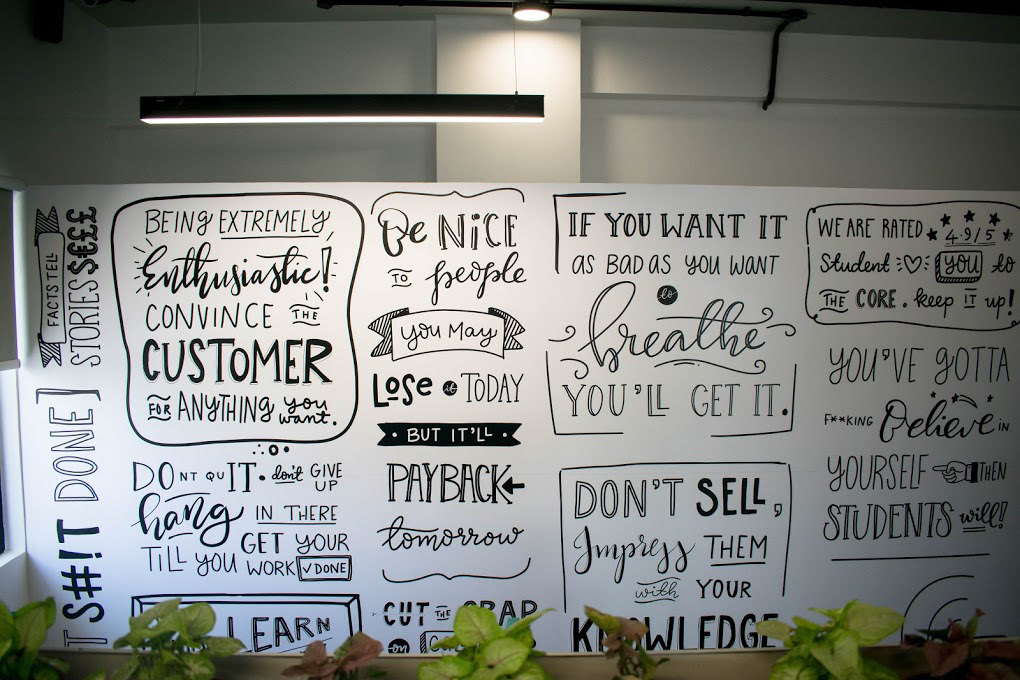 FACTS TELL
STORIES $€££
T S#!T DONE
BEING EXTREMELY
Enthusiastic!
CONVINCE THE
CUSTOMER
FOR ANYTHING you
want.
DONT QUIT. don't GIVE
UP
hang IN THERE
TILL YOU GET YOUR
WORK ✓DONE
LEARN
Be NICE
TO people
you May
LOSE it TODAY
BUT IT'LL
PAYBACK
tomorrow
CUT THE CRAP
on
IF YOU WANT IT
AS BAD AS YOU WANT
to
breathe
YOU'LL GET IT.
DON'T SELL,
Impress THEM
with YOUR
KNOWLEDGE
WE ARE RATED 4.9/5
Student YOU to
THE CORE. keep IT up!
YOU'VE GOTTA
F**KING Believe IN
YOURSELF THEN
STUDENTS will!